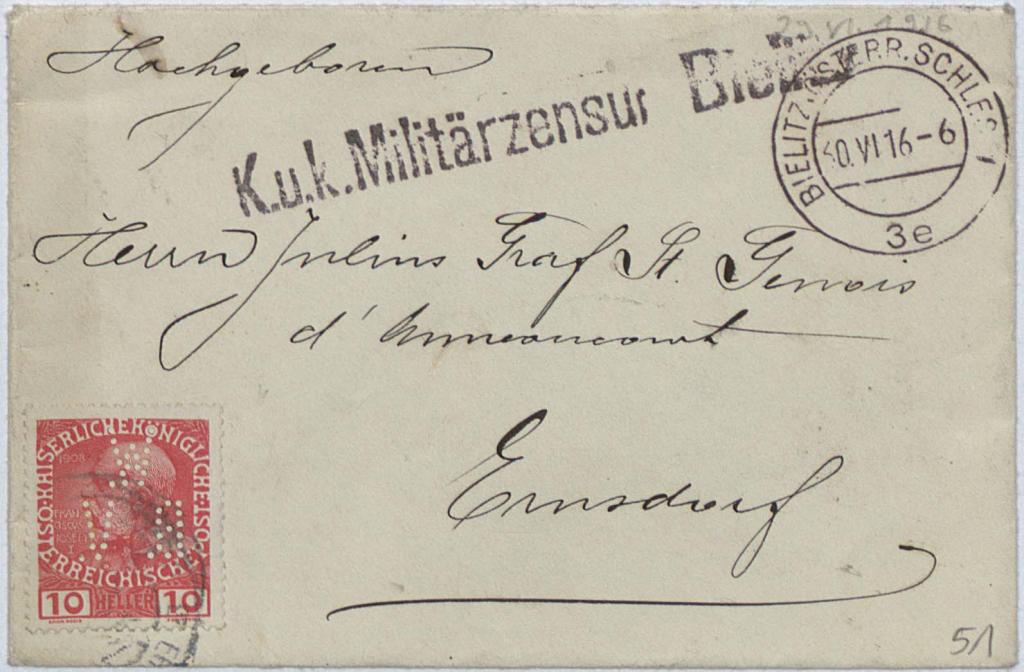 29.VI.1916
Hochgeboren
K.u.k.Militärzensur Bielitz
BIELITZ.ÖSTERR.SCHLES.1
30.VI 16-6
3e
Herrn Julius Graf St. Genois
d'Anneoncourt
Ernsdorf
KAISERLICHE KÖNIGLICHE ÖSTERREICHISCHE
1908
FRAN
CISCVS
IOSEPH
I
10 HELLER 10
51